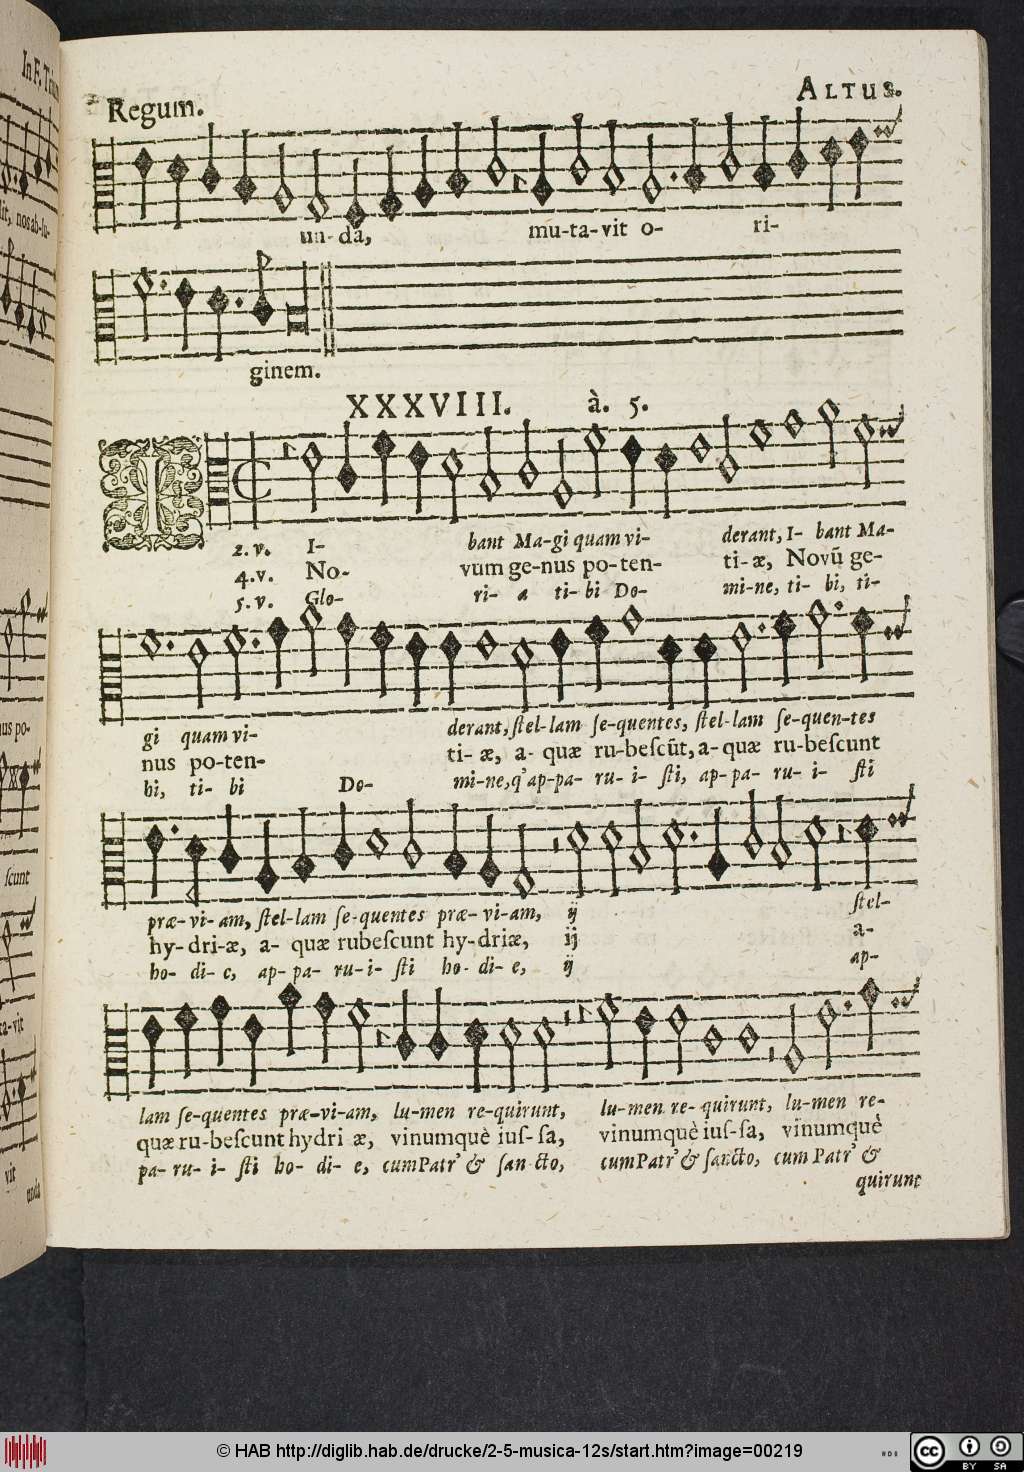 Regum.
ALTUS.
un- da, mu-ta-vit o- ri-
ginem.
XXXVIII. à. 5.
I
2. v. I- bant Ma-gi quam vi- derant, I- bant Ma-
4. v. No- vum ge-nus po-ten- ti-æ, Novũ ge-
5. v. Glo- ri- a ti- bi Do- mi-ne, ti- bi, ti-
gi quam vi- derant, ſtel-lam ſe-quentes, ſtel-lam ſe-quen-tes
nus po-ten- ti- æ, a- quæ ru-beſcũt, a-quæ ru-beſcunt
bi, ti- bi Do- mi-ne, q' ap-pa- ru- i- ſti, ap-pa- ru- i- ſti
præ-vi-am, ſtel-lam ſe-quentes præ-vi-am, ij ſtel-
hy-dri-æ, a- quæ rubeſcunt hy-driæ, ij a-
ho- di- e, ap-pa- ru-i- ſti ho- di- e, ij ap-
lam ſe-quentes præ-vi-am, lu-men re-quirunt, lu-men re- quirunt, lu-men re-
quæ ru-beſcunt hydri æ, vinumquè iuſ-ſa, vinumquè iuſ-ſa, vinumquè
pa- ru- i- ſti ho- di- e, cum Patr' & ſan cto, cum Patr' & ſancto, cum Patr' &
quirunt
© HAB http://diglib.hab.de/drucke/2-5-musica-12s/start.htm?image=00219
cc BY SA